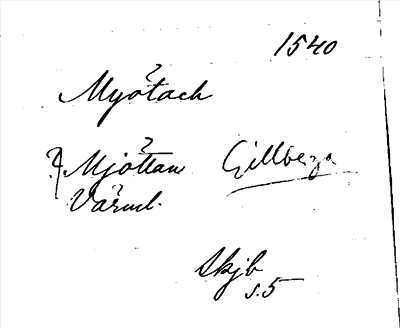 1540
Myötach
? Mjöttan Gillberga
Värml.
Skjb
s. 5